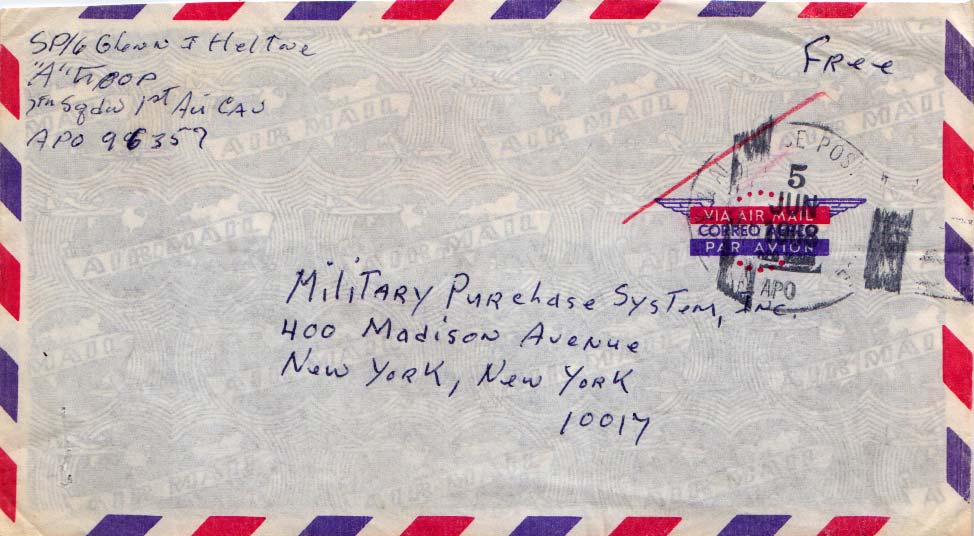 SP/6 Glenn I Heltne
"A" Troop
7th Sqdn 1st Air Cav
APO 96357
Free
5
JUN
VIA AIR MAIL
CORREO AEREO
PAR AVION
APO
Military Purchase System, Inc.
400 Madison Avenue
New York, New York
10017